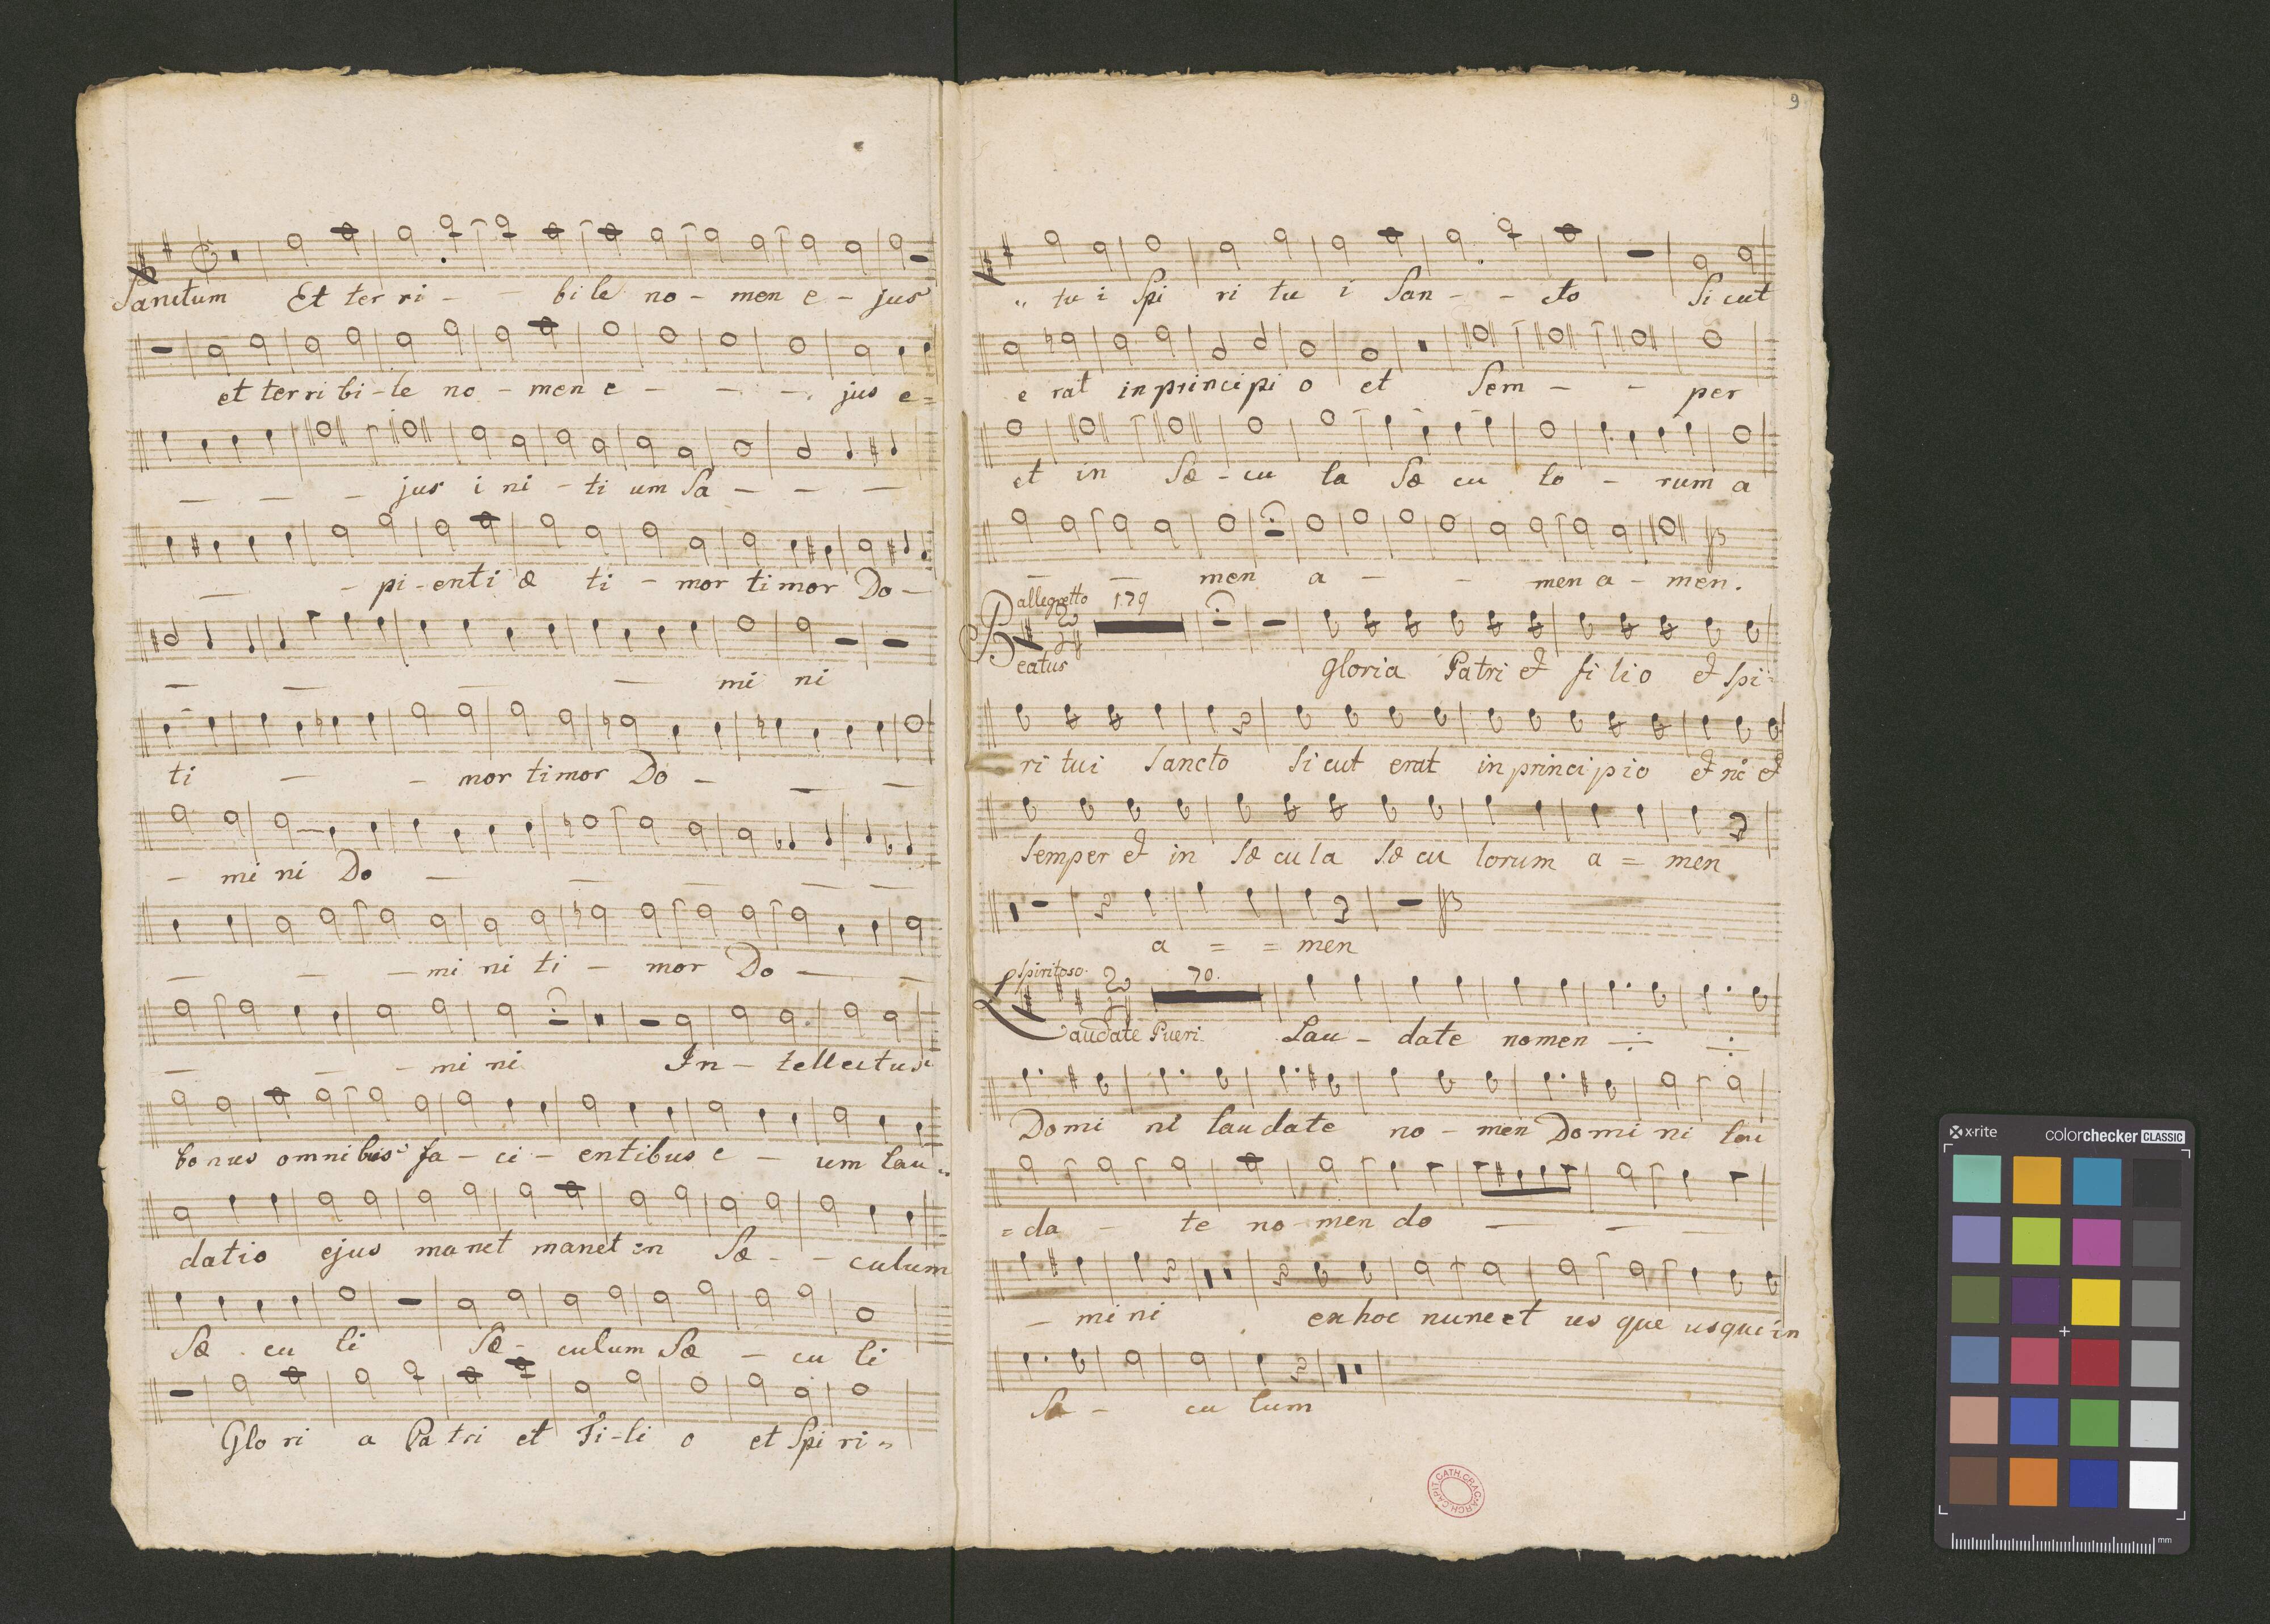 Sanctum Et ter ri - - bi le no - men e - jus
et ter ri bi - le no - men e - - - jus e =
- - - jus i ni - ti um Sa - - -
- - pi - enti æ ti - mor timor Do -
- - - - mi ni
ti - - mor timor Do - - -
- mi ni Do - - - - -
- - - mi ni ti - mor Do - -
- - - mi ni In - tellectus
bonus omnibus fa - ci - entibus e - um lau
datio ejus manet manet in Sæ - - culum
Sæ - cu li Sæ - culum Sæ - cu li
Glo ri a Pa tri et Fi - li o et Spi ri
9
tu i Spi ri tu i San - - cto Si cut
e rat in principi o et Sem - - per
et in Sæ - cu la Sæ cu lo - rum a
- - men a - - men a - men.
allegretto 179
Beatus gloria Patri et fi li o et Spi =
ri tui Sancto Si cut erat in principio et nc et
Semper et in Sæ cu la Sæ cu lorum a = men
a = = men
spiritoso. 70.
Laudate Pueri. Lau - date nomen
Domi ni lau date no - men Domi ni lau
= da - te no - men do - - -
- mi ni ex hoc nunc et us que usque in
Sæ - cu lum
ARCH. CAPIT. CATH. CRAC.
x-rite colorchecker CLASSIC
mm